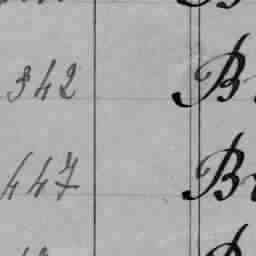 342 B
447 Br